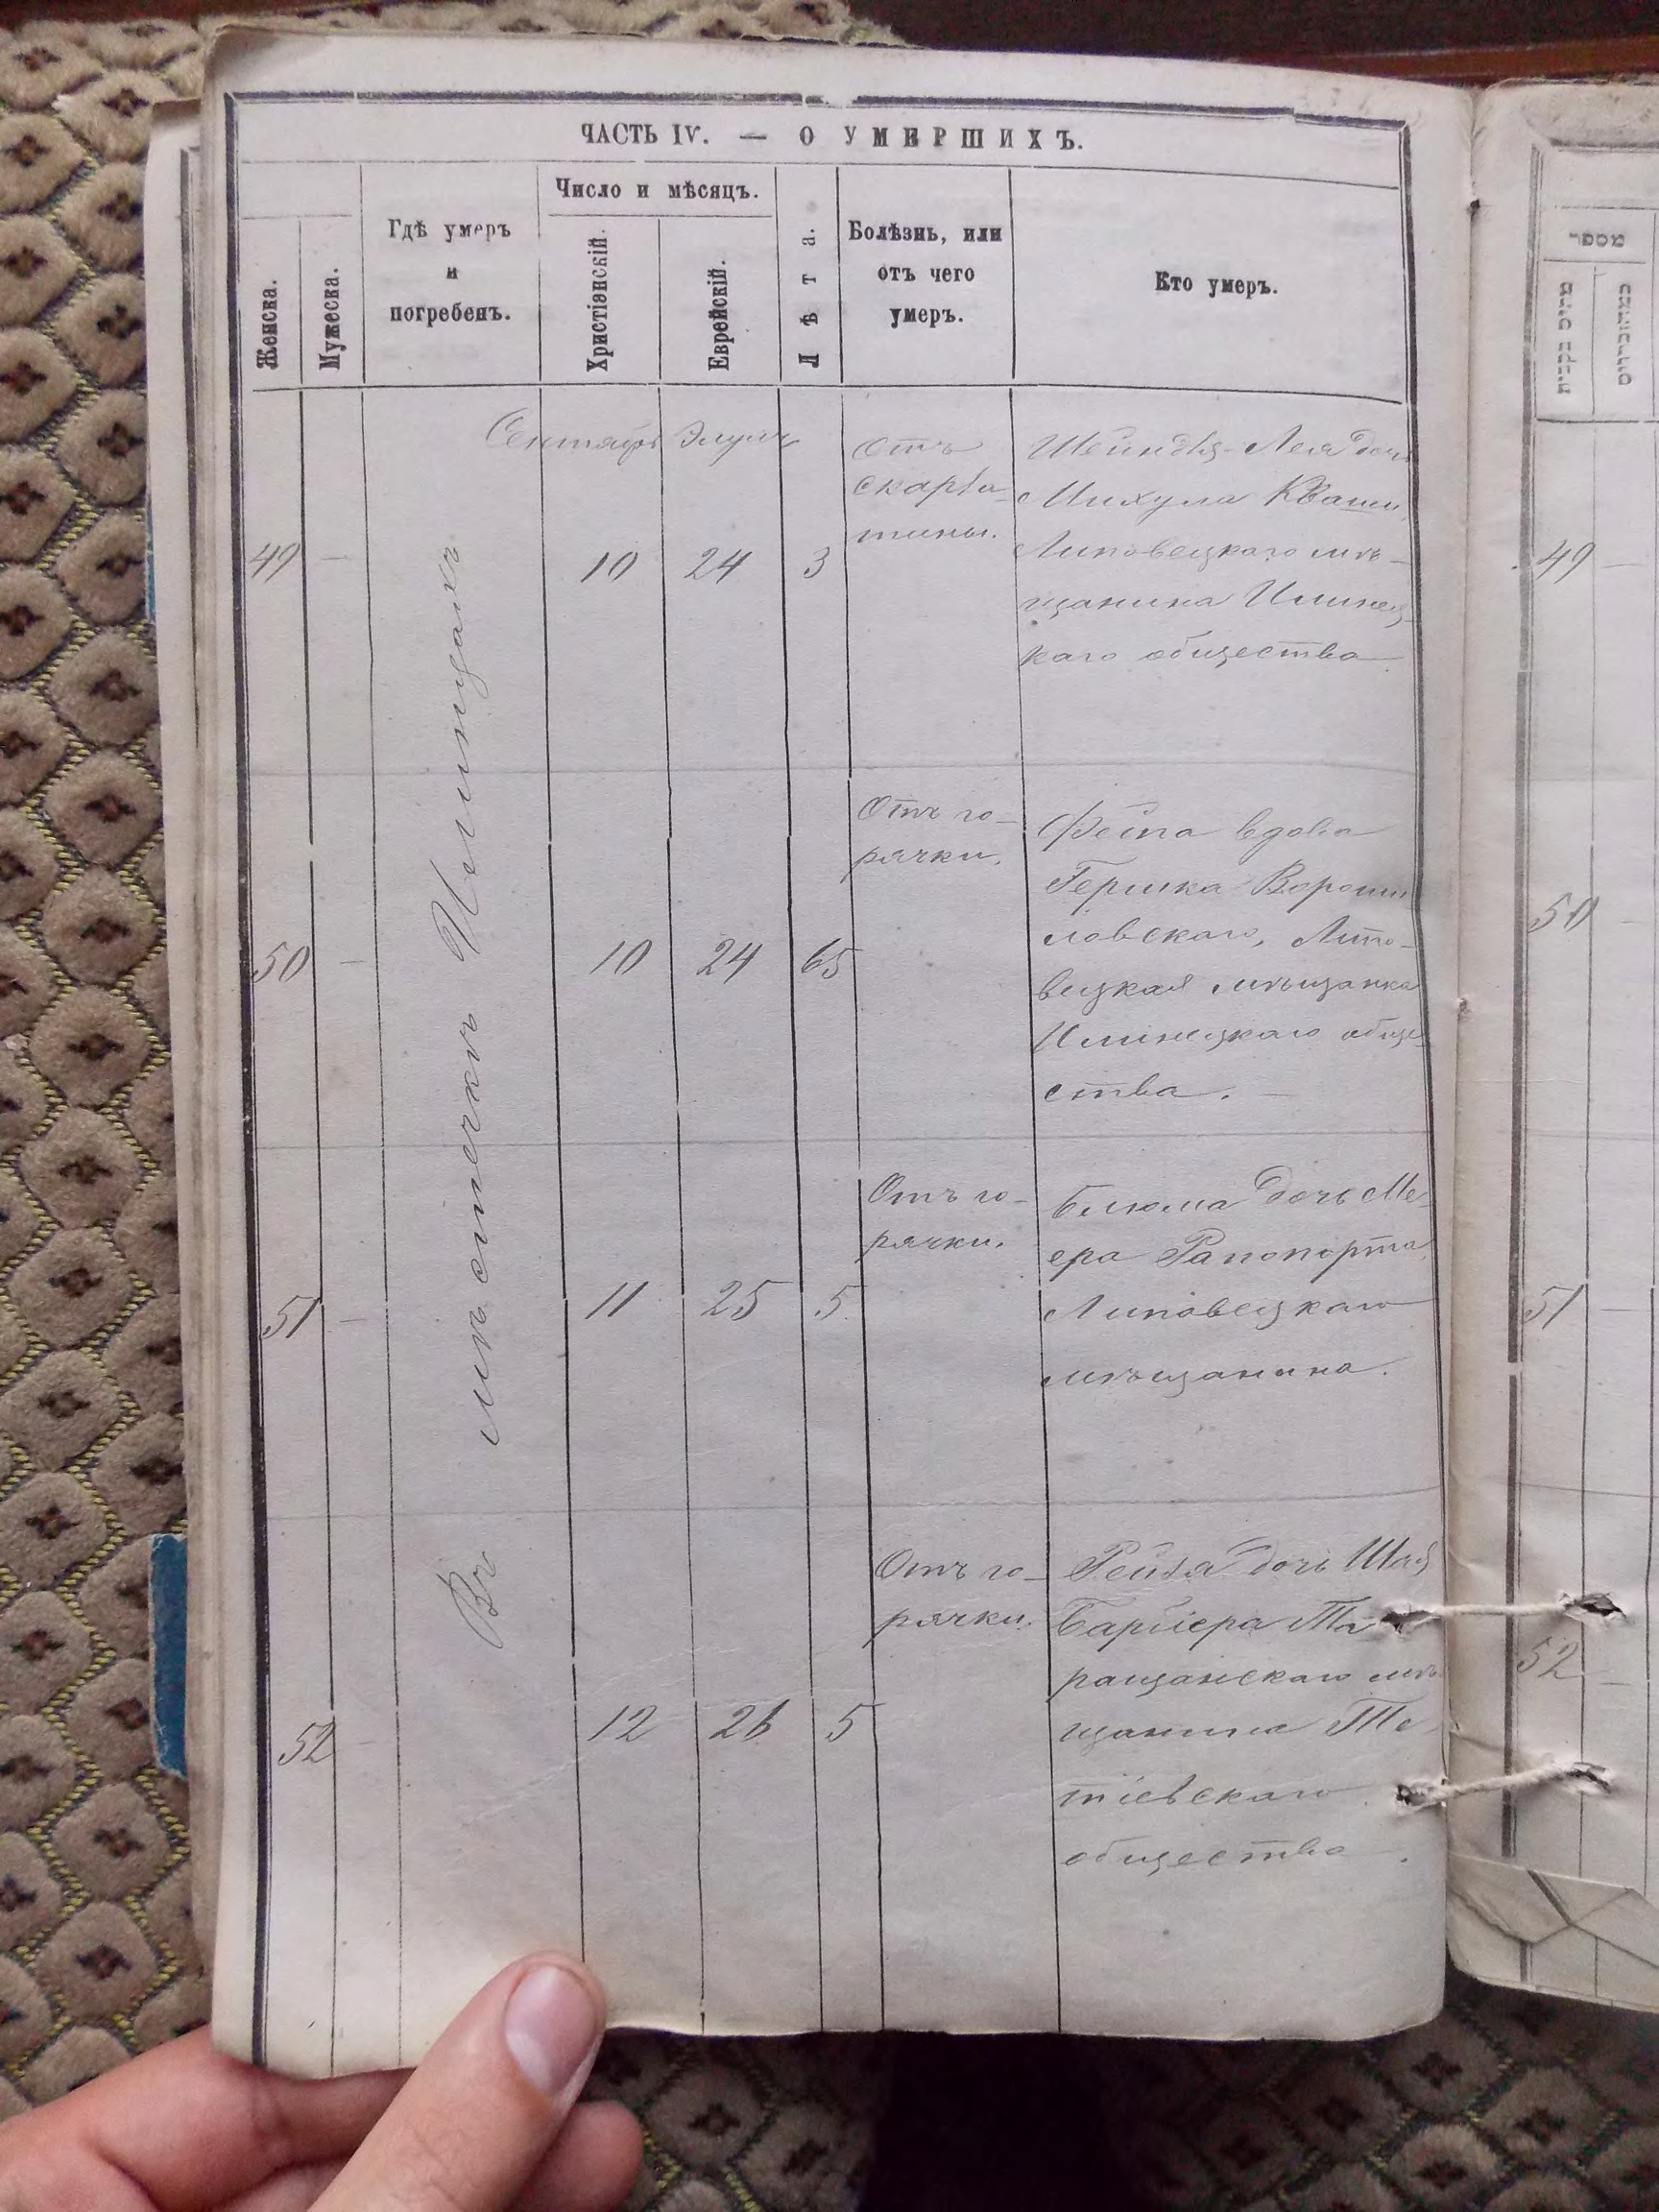 ЧАСТЬ IV. — О УМЕРШИХЪ.
Женска.
Мужеска.
Гдѣ умеръ
и
погребенъ.
Число и мѣсяцъ.
Христіанскій.
Еврейскій.
Лѣта.
Болѣзнь, или
отъ чего
умеръ.
Кто умеръ.
Сентябрь Элулъ
Въ мѣстечкѣ Илинцахъ
49 — 10 24 3
Отъ
скарла-
тины.
Шейндля-Лея дочь
Михула Кваши
Липовецкаго мѣ-
щанина Илинец-
каго общества
50 — 10 24 65
Отъ го-
рячки.
Фейга вдова
Гершка Вороши
ловскаго, Липо-
вецкая мѣщанка
Илинецкаго обще-
ства. —
51 — 11 25 5
Отъ го-
рячки.
Блюма дочь Ме-
ера Рапопорта
Липовецкаго
мѣщанина.
52 12 26 5
Отъ го-
рячки.
Рейза дочь
Барбіера Та
ращанскаго мѣ
щанина Те
тіевскаго
общества.
מספר
49 —
50 —
51 —
52 —